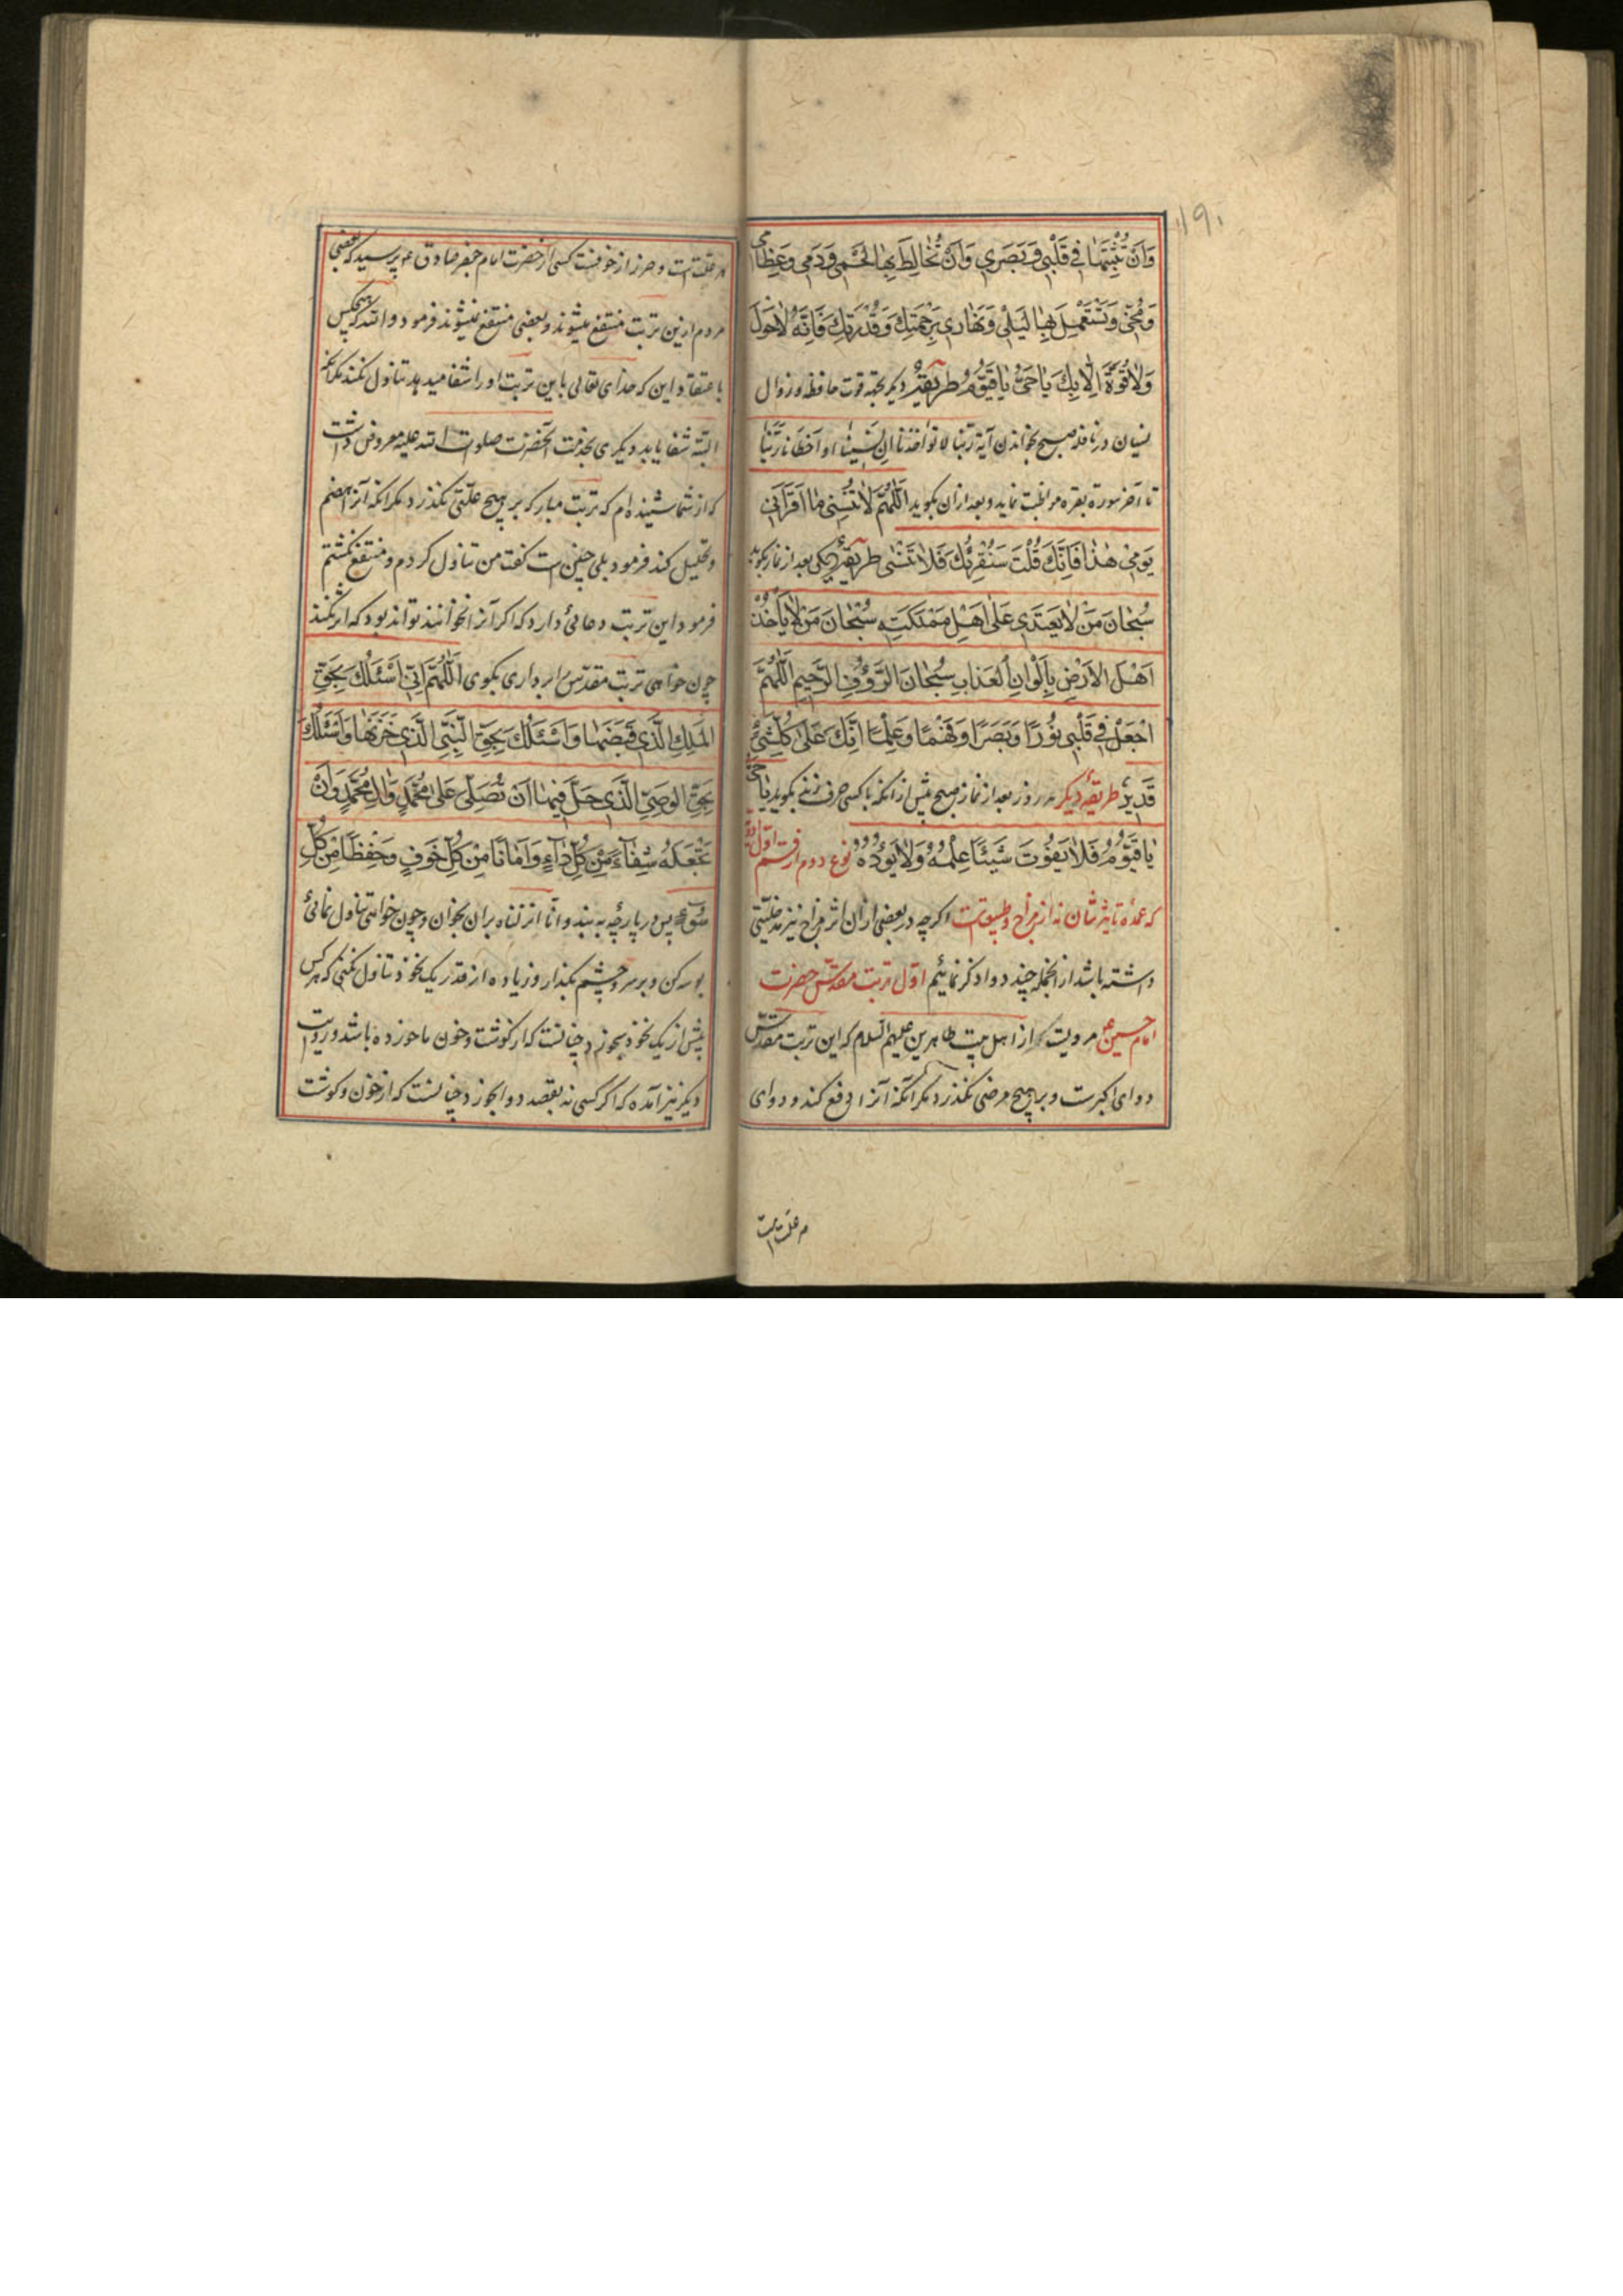 ۱۹۰
وَاَنْ تُثْبِتَهَا فِی قَلْبِی وَبَصَرِی وَاَنْ تُخَالِطَ بِهَا لَحْمِی وَدَمِی وَعِظَامِی
وَمُخِّی وَتَسْتَعْمِلَ بِهَا لَیْلِی وَنَهَارِی بِرَحْمَتِكَ وَقُدْرَتِكَ فَاِنَّهُ لَاحَوْلَ
وَلَا قُوَّةَ اِلَّا بِكَ یَا حَیُّ یَا قَیُّومُ طریقهٔ دیگر بجهة قوت حافظه و زوال
نسیان در نافله صبح بخواندن آیه ربنا لا تؤاخذنا ان نسینا او اخطانا ربنا
تا آخر سورة بقره مواظبت نماید و بعد از آن بگوید اَللّٰهُمَّ لَا تُنْسِنِی مَا اَقْرَاَنِی
یَوْمِی هٰذَا فَاِنَّكَ قُلْتَ سَنُقْرِئُكَ فَلَا تَنْسٰی طریقهٔ دیگر بعد از نماز بگوید
سُبْحَانَ مَنْ لَا یَعْتَدِی عَلٰی اَهْلِ مَمْلَكَتِهِ سُبْحَانَ مَنْ لَا یَأْخُذُ
اَهْلَ الْاَرْضِ بِاَلْوَانِ الْعَذَابِ سُبْحَانَ الرَّؤُفِ الرَّحِیمِ اَللّٰهُمَّ
اجْعَلْ فِی قَلْبِی نُورًا وَبَصَرًا وَفَهْمًا وَعِلْمًا اِنَّكَ عَلٰی كُلِّ شَیْءٍ
قَدِیرٌ طریقه دیگر هر روز بعد از نماز صبح پیش از آنکه با کسی حرف زند بگوید یَا حَیُّ
یَا قَیُّومُ فَلَا یَفُوتُ شَیْئًا عِلْمُهُ وَلَا یَؤُدُهُ نوع دوم از قسم اول
که عمدهٔ تاثیرشان نه از مزاج و طبیعت است اگرچه در بعضی از آن اثر مزاج نیز مدخلیتی
داشته باشد از انجمله چند دوا ذکر نمائیم اول تربت مقدس حضرت
امام حسین ع مرویست که از اهل بیت طاهرین علیهم السلام که این تربت مقدس
دوای اکبرست و بر هیچ مرضی نگذرد مگر آنکه آنرا دفع کند و دوای
هر علت است
هر علت است و حرز از خوفست کسی از حضرت امام جعفر صادق ع پرسید که بعضی
مردم ازین تربت منتفع میشوند و بعضی منتفع نمیشوند فرمود والله که هیچکس
باعتقاد این که خدای تعالی باین تربت او را شفا میدهد تناول نکند مگر آنکه
البته شفا یابد دیگری بخدمت آنحضرت صلوات الله علیه معروض داشت
که از شما شنیده‌ام که تربت مبارکه بر هیچ علتی نگذرد مگر آنکه آنرا هضم
و تحلیل کند فرمود بلی چنین است گفت من تناول کردم و منتفع نگشتم
فرمود این تربت دعائی دارد که اگر آنرا نخوانند تواند بود که اثر نکند
چون خواهی تربت مقدس را برداری بگوی اَللّٰهُمَّ اِنِّی اَسْئَلُكَ بِحَقِّ
الْمَلَكِ الَّذِی قَبَضَهَا وَاَسْئَلُكَ بِحَقِّ النَّبِیِّ الَّذِی خَزَنَهَا وَاَسْئَلُكَ
بِحَقِّ الْوَصِیِّ الَّذِی حَلَّ فِیهَا اَنْ تُصَلِّیَ عَلٰی مُحَمَّدٍ وَاٰلِ مُحَمَّدٍ وَاَنْ
تَجْعَلَهُ شِفَاءً مِنْ كُلِّ دَاءٍ وَاَمَانًا مِنْ كُلِّ خَوْفٍ وَحِفْظًا مِنْ كُلِّ
سُوءٍ پس در پارچه به بند و انا انزلناه بر آن بخوان و چون خواهی تناول نمائی
بوسه کن و بر سر و چشم بگذار و زیاده از قدر یک نخود تناول نکنی که هر کس
بیش از یک نخود بخورد چنانست که از گوشت و خون ما خورده باشد و روایت
دیگر نیز آمده که اگر کسی نه بقصد دوا بخورد چنانست که از خون و گوشت